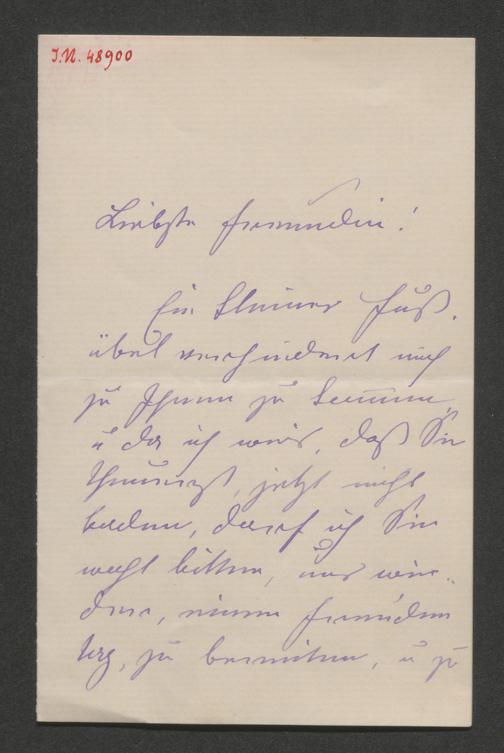 I.N. 48900
Liebste Freundin!
Ein kleiner Fuß-
übel verhindert mich
zu Ihnen zu kommen,
u da ich weiß, daß Sie
jetzt nicht
baden, darf ich Sie
wohl bitten, uns wie-
der, einen Freuden
tag, zu bereiten, u zu